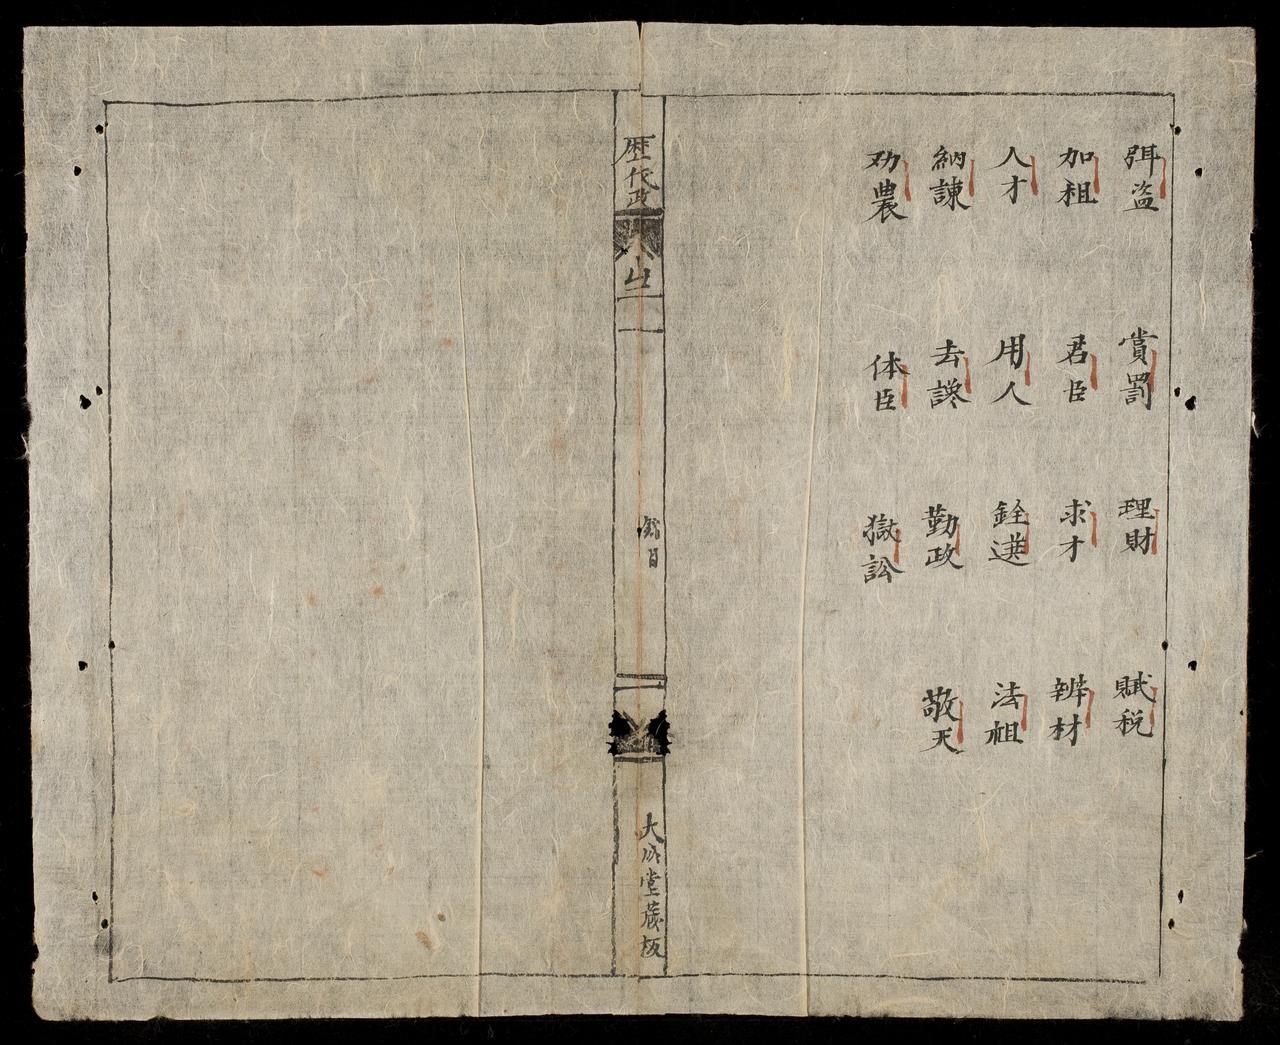 弭盗 賞罰 理財 賦税
加租 君臣 求才 辨材
人才 用人 銓選 法祖
納諫 去讒 勤政 敬天
劝農 体臣 獄訟
歴代政
目
大成堂蔵板